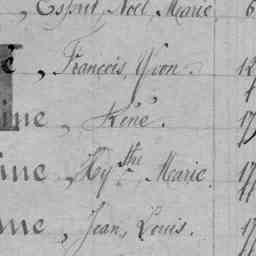 , Esprit, Noël, Marie. 6
é, François, Yvon. 12
ine, Réné. 17
ine, Hy.the Marie. 17
ine, Jean, Louis. 17